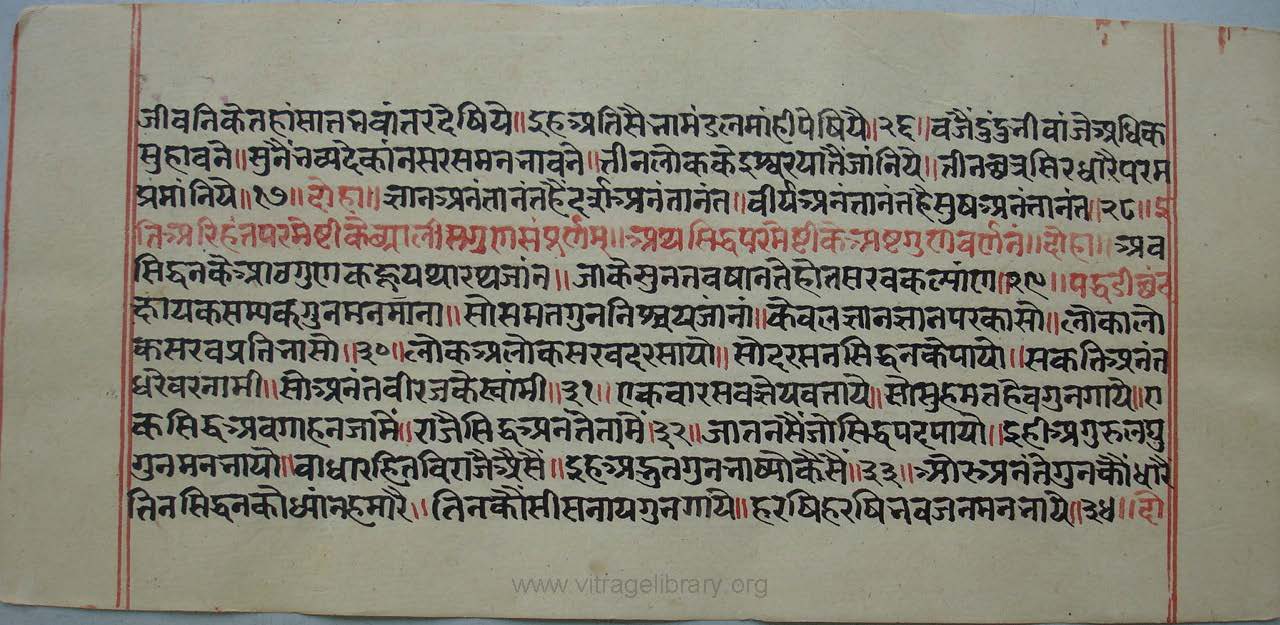 जीवनिकैतहांसातभवांतरदेषियै॥इहअतिसैनामंडलमांहीपेषियै॥२६॥वजैंदुंदुभीवांजैअधिक
सुहावनै॥सुनैंभव्यदेकांनसरसमनभावनै॥तीनलोककेईश्वरयातैंजांनियै॥तीनछत्रसिरधारैपरम
प्रमांनियै॥१७॥दोहा॥ज्ञानअनंतानंतहैदर्शअनंतानंत॥वीर्यअनंतानंतहैसुषअनंतानंत॥२८॥इ
तिअरिहंतपरमेष्टीकेछ्यालीसगुणसंपूर्णम्॥अथसिद्धपरमेष्टीकेअष्टगुणवर्णनं॥दोहा॥अव
सिद्धनकेआठगुणकहूयथारथजांन॥जाकैसुनतवषानतैहोतसरवकल्यांण॥२९॥पद्धडीछंद
क्षायकसम्यकगुनमनमाना॥सोसमतगुननिश्चयजांनां॥केवलज्ञानज्ञानपरकासो॥लोकालो
कसरवप्रतिभासो॥३०॥लोकअलोकसरवदरसायो॥सोदरसनसिद्धनकेपायो॥सकतिअनंत
धरैवरनामी॥सोअनंतवीरजकेस्वांमी॥३१॥एकवारसवज्ञेयवतायै॥सोसुहमतहैवगुनगायै॥ए
कसिद्धअवगाहनजामैं॥राजैसिद्धअनंतैतामैं॥३२॥जातनसैंजोसिद्धपदपायो॥इहीअगुरुलघु
गुनमनभायो॥वाधारहितविराजैअैसैं॥इहअद्भुतगुनभाष्योकैसैं॥३३॥औरुअनंतैगुनकौंधारैं
तिनसिद्धनकौध्यांनहमारै॥तिनकौंसीसनायगुनगायै॥हरषिहरषिभवजनमनभायै॥३४॥दो
www.vitragelibrary.org